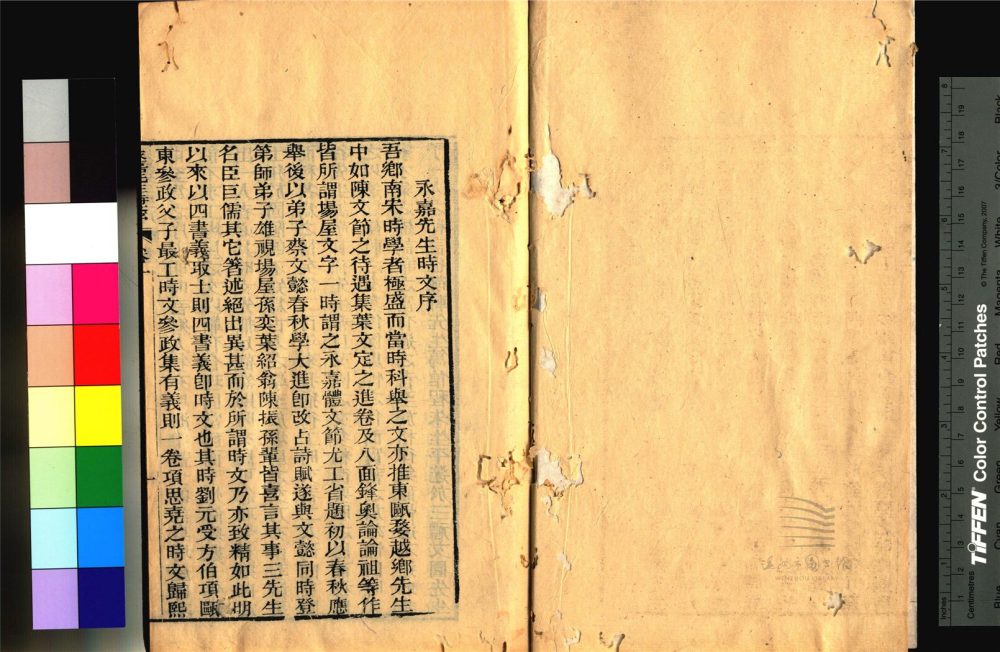 永嘉先生時文序
吾鄉南宋時學者極盛而當時科舉之文亦推東甌婺越鄉先生
中如陳文節之待遇集葉文定之進卷及八面鋒奧論論祖等作
皆所謂場屋文字一時謂之永嘉體文節尤工省題初以春秋應
舉後以弟子蔡文懿春秋學大進卽改占詩賦遂與文懿同時登
第師弟子雄視場屋孫奕葉紹翁陳振孫輩皆喜言其事三先生
名臣巨儒其它箸述絕出異甚而於所謂時文乃亦致精如此明
以來以四書義取士則四書義卽時文也其時劉元受方伯項甌
東參政父子最工時文參政集有義則一卷項思堯之時文歸熙
TIFFEN Color Control Patches
© The Tiffen Company, 2007
Inches
Centimetres